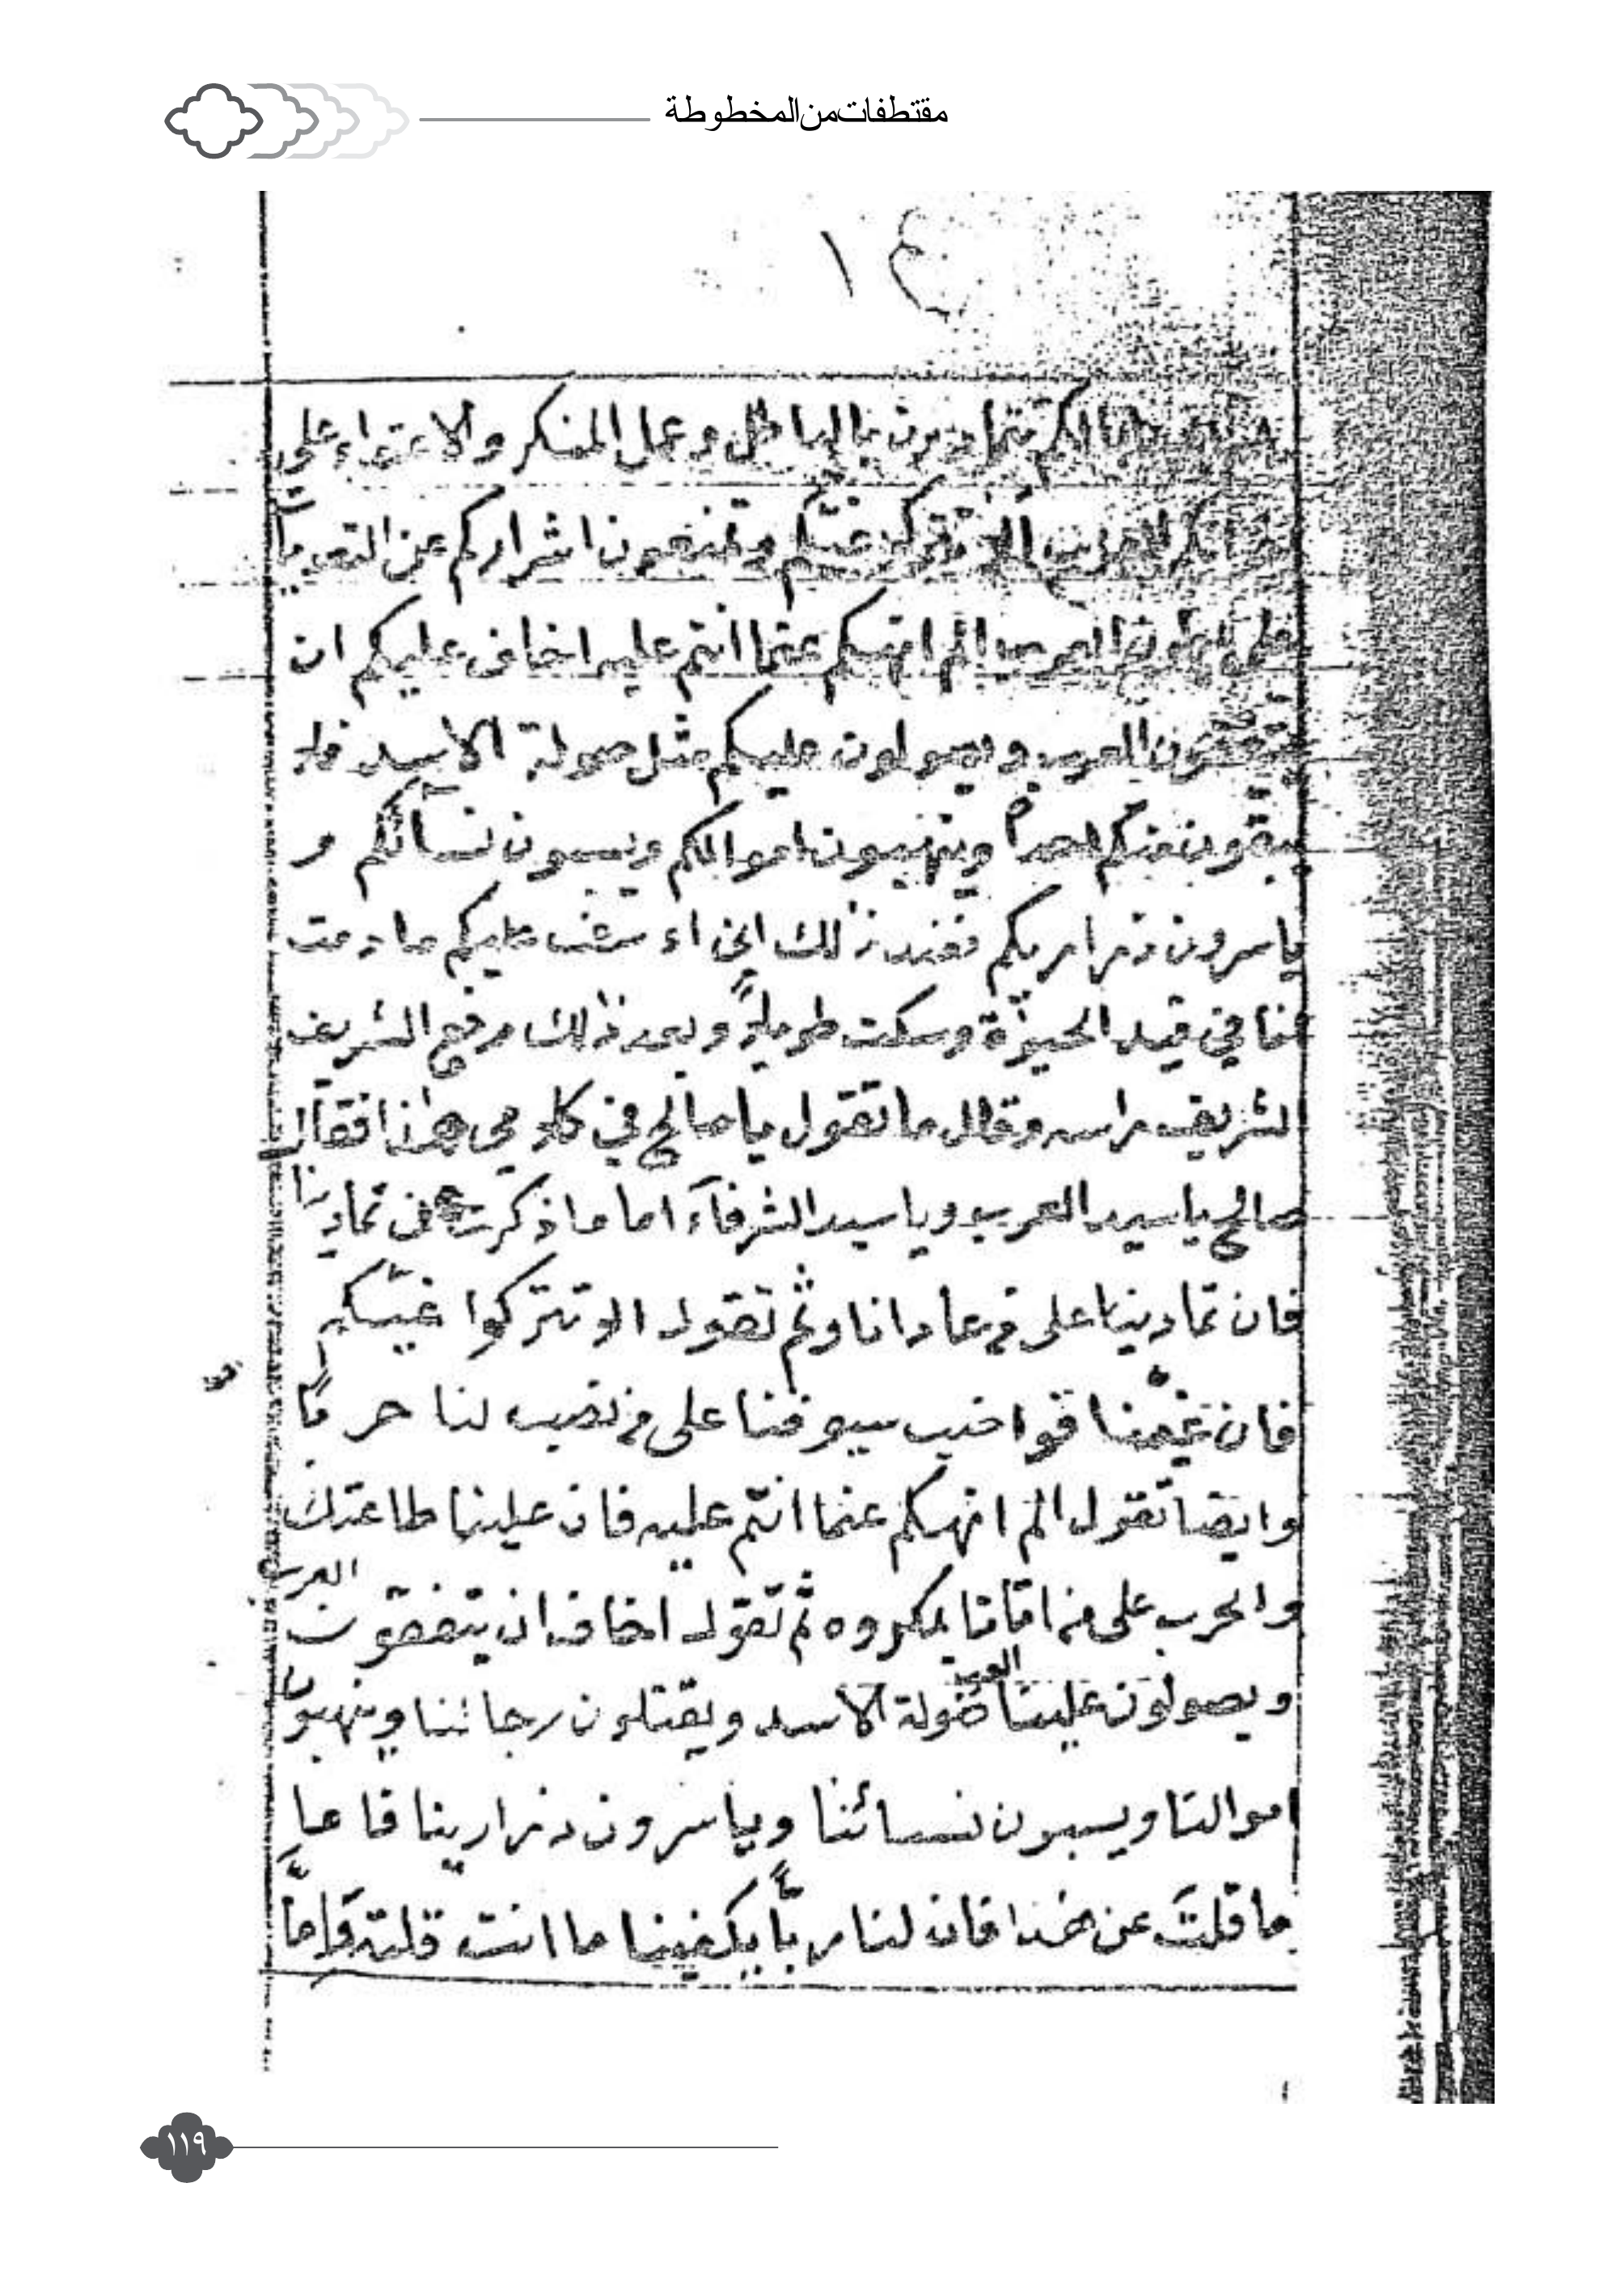 مقتطفات من المخطوطة
١٤
بالباطل وعمل المنكر والاعتداء على
غيّكم وتمنعون اشراركم عن التعديا
الم انهيكم عنما انتم عليه اخاف عليكم ان
العرب ويصولون عليكم مثل صولة الاسد فلا
يبقون منكم احداً وينهبون اموالكم ويسبون نسآئكم و
ياسرون ذراريكم فعند ذلك اني اء سف عليكم ما دمت
انا في قيد الحيوٰة وسكت طويلاً وبعد ذلك رفع الشريف
الشريف راسه وقال ما تقول يا صالح في كلامي هٰذا فقال
صالح يا سيد العرب ويا سيد الشرفآء اما ما ذكرت من تمادينا
فان تمادينا على من عادانا وثم تقول الا تتركوا غيّكم
فان غيّنا قواضب سيوفنا على من نصب لنا حرباً
وايضا تقول الم انهكم عنما انتم عليه فان علينا طاعتك
والحرب على من اتانا بمكروه ثم تقول اخاف ان يتفقون العرب
ويصولون علينا العرب صولة الاسد ويقتلون رجالنا وينهبون
اموالنا ويسبون نسائنا وياسرون ذرارينا فاما
ما قلتَ عن هٰذا فان لنا ربّاً يكفينا ما انت قلته وامّا
١١٩